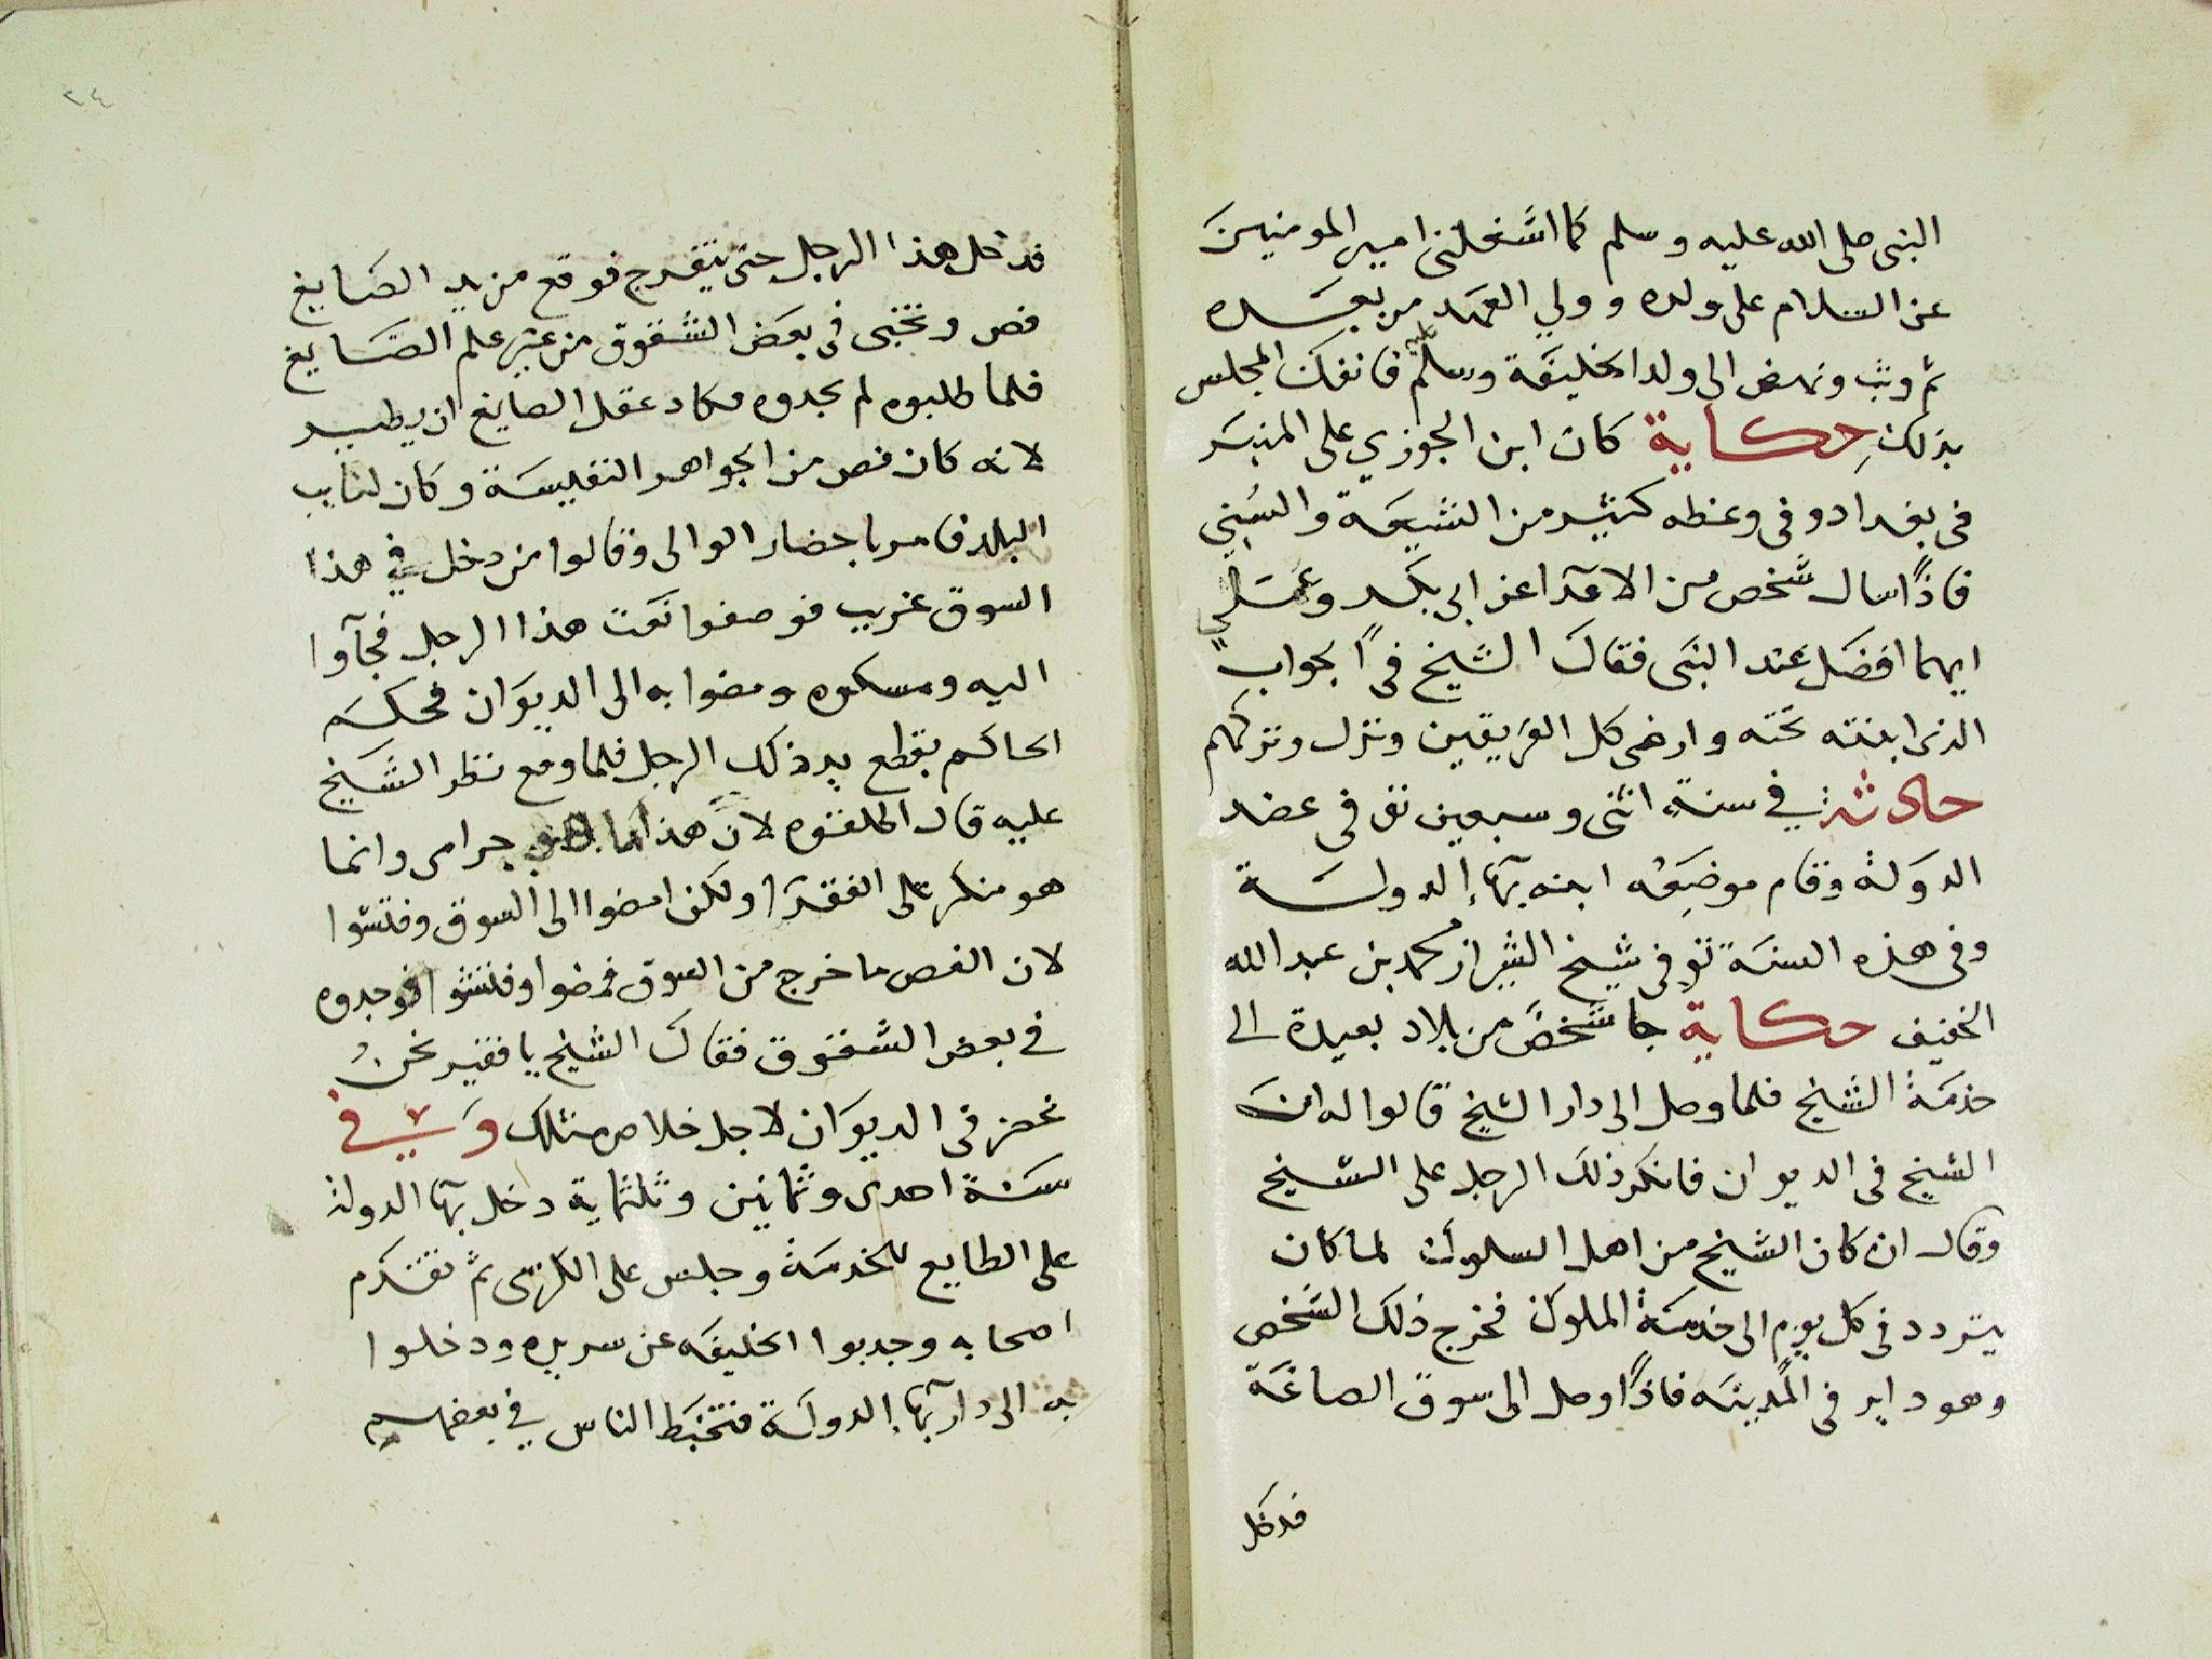 النبى صلى الله عليه وسلم كما اشغلنى امير المومنين
عن السلام على ولده وولي العهد من بعده
ثم وثب ونهض الى ولد الخليفة وسلم عليه فانفك المجلس
بذلك حكاية كان ابن الجوزي على المنبر
فى بغداد وفى وعظه كثير من الشيعة والسني
فاذا سال شخص من الامرا عن ابى بكر وعلي
ايهما افضل عند النبى فقال الشيخ فى الجواب
الذى ابنته تحته وارضى كل الفريقين ونزل وتركهم
حادثة في سنة اثنى وسبعين توفى عضد
الدولة وقام موضعه ابنه بهآء الدولة
وفى هذه السنة توفى شيخ الشيراز محمد بن عبد الله
الخفيف حكاية جا شخص من بلاد بعيدة الى
خدمة الشيخ فلما وصل الى دار الشيخ قالوا له ان
الشيخ فى الديوان فانكر ذلك الرجل على الشيخ
وقال ان كان الشيخ من اهل السلوك لما كان
يتردد فى كل يوم الى خدمة الملوك فخرج ذلك الشخص
وهو داير فى المدينه فاذا وصل الى سوق الصاغة
فدخل
٢٤
فدخل هذا الرجل حتى يتفرج فوقع من يد الصايغ
فص وتخبى فى بعض الشقوق من غير علم الصايغ
فلما طلبوه لم يجدوه فكاد عقل الصايغ ان يطير
لانه كان فص من الجواهر النفيسة وكان لنايب
البلد فامر باحضار الوالى وقالوا من دخل في هذا
السوق غريب فوصفوا نعت هذا الرجل فجآوا
اليه ومسكوه ومضوا به الى الديوان فحكم
الحاكم بقطع يد ذلك الرجل فلما وقع نظر الشيخ
عليه قال اطلقوه لان هذا ما هو حرامى وانما
هو منكر على الفقرا ولكن امضوا الى السوق وفتشوا
لان الفص ما خرج من السوق فمضوا وفتشوا فوجدوه
في بعض الشقوق فقال الشيخ يا فقير نحن
نحضر فى الديوان لاجل خلاص مثلك وفي
سنة احدى وثمانين وثلثماية دخل بهآ الدولة
على الطايع للخدمة وجلس على الكرسى ثم تقدم
اصحابه وجدبوا الخليفه عن سريره ودخلوا
به الى دار بهآء الدولة فتخبط الناس في بعضهم